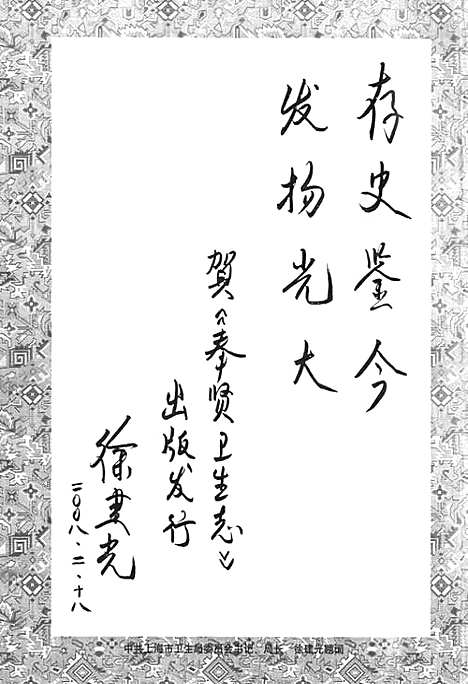 存史鉴今
发扬光大
贺《奉贤卫生志》
出版发行
徐建光
二〇〇八·二·十八
中共上海市卫生局委员会书记、局长 徐建光题词